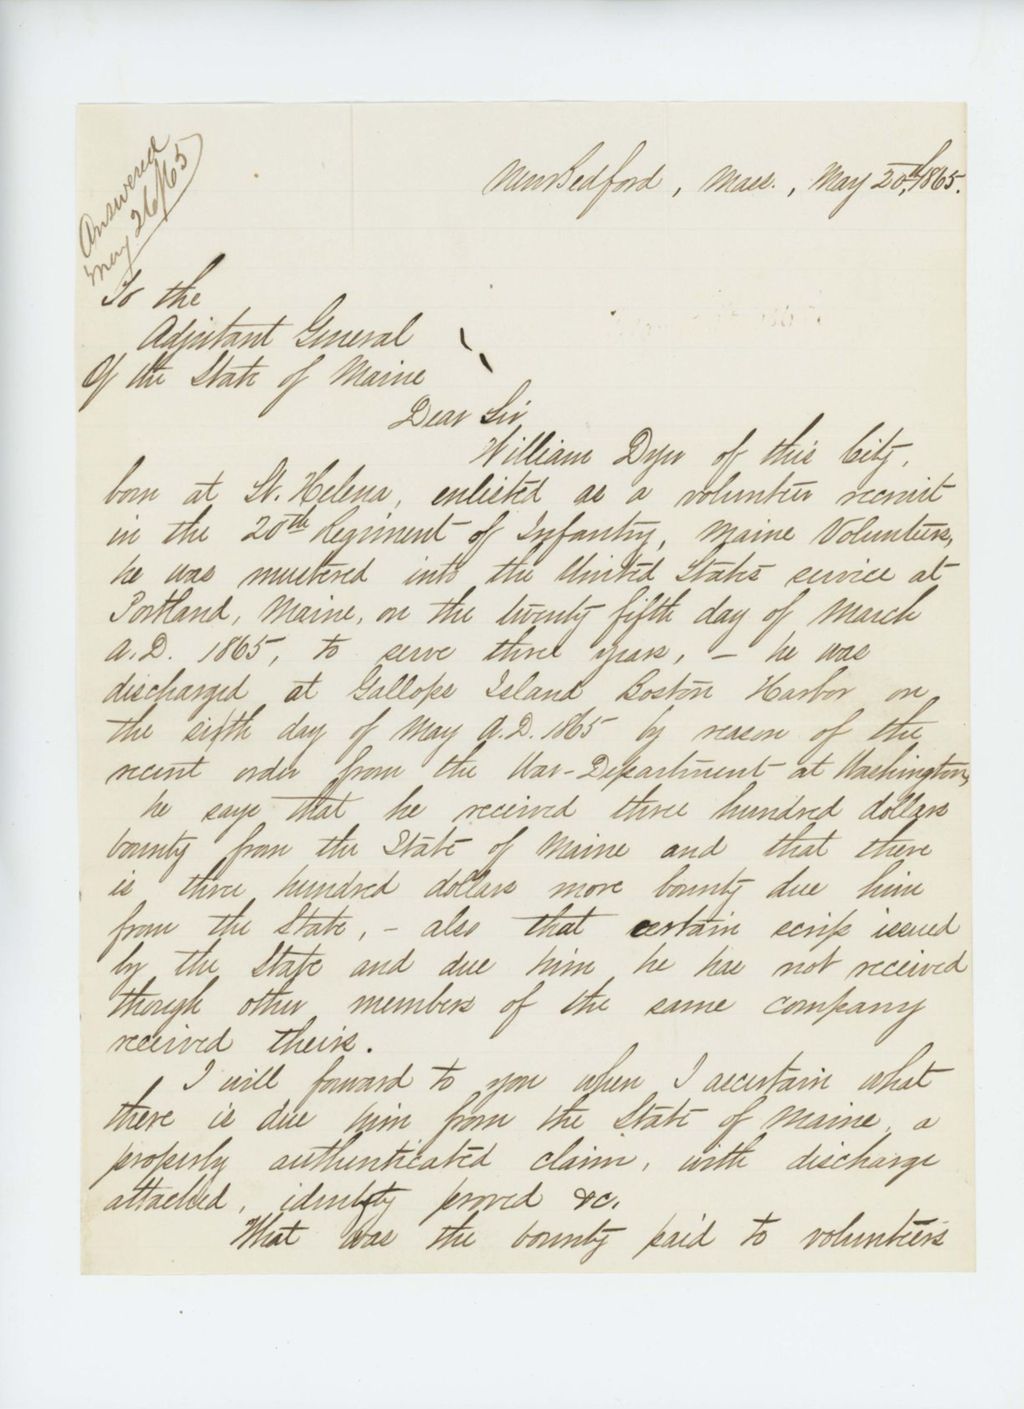 Answered
May 26/65
New Bedford, Mass., May 20th, 1865.
To the
Adjutant General
Of the State of Maine
Dear Sir,
William Dyer of this City,
born at St. Helena, enlisted as a volunteer recruit
in the 20th Regiment of Infantry, Maine Volunteers,
he was mustered into the United States service at
Portland, Maine, on the twenty fifth day of March
A.D. 1865, to serve three years, – he was
discharged at Gallops Island Boston Harbor on
the sixth day of May A.D. 1865 by reason of the
recent order from the War-Department at Washington,
he says that he received three hundred dollars
bounty from the State of Maine and that there
is three hundred dollars more bounty due him
from the State, – also that certain scrip issued
by the State and due him he has not received
though other members of the same company
received theirs.
I will forward to you when I ascertain what
there is due him from the State of Maine, a
properly authenticated claim, with discharge
attached, identity proved &c.
What was the bounty paid to volunteers